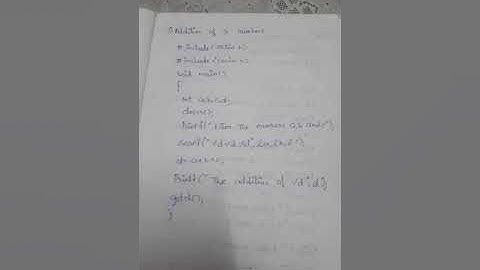 1) Addition of 3 numbers
# include <stdio.h>
# include <conio.h>
void main()
{
int a,b,c,d;
clrscr();
printf("Enter the numbers a,b and c");
scanf("%d%d%d",&a,&b,&c);
d=a+b+c;
printf("The addition of %d",d);
getch();
}